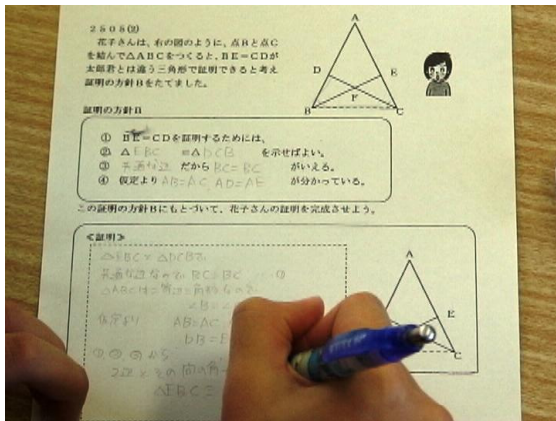 2505(2)
花子さんは、右の図のように、点Bと点C
を結んで△ABCをつくると、BE=CDが
太郎君とは違う三角形で証明できると考え
証明の方針Bをたてました。
A
D
E
F
B
C
証明の方針B
① BE=CDを証明するためには、
② △EBC ≡△DCB を示せばよい。
③ 共通な辺 だから BC=BC がいえる。
④ 仮定より AB=AC, AD=AE が分かっている。
この証明の方針Bにもとづいて、花子さんの証明を完成させよう。
≪証明≫
△EBCと△DCBで
共通な辺なので BC=BC ……①
△ABCは二等辺三角形なので
∠B=∠
仮定より AB=AC
DB=E
①②③から
2辺とその間の角
△EBC≡
A
E
C